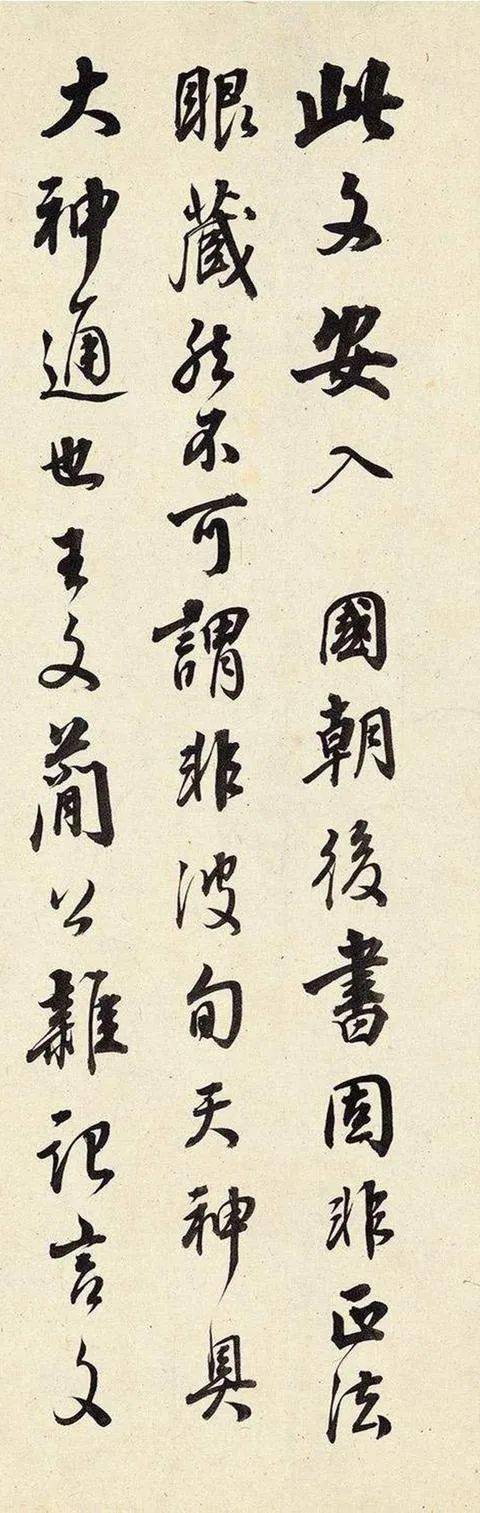 此文安入 國朝後書固非正法
眼藏然不可謂非波旬天神具
大神通也王文簡公雜記言文